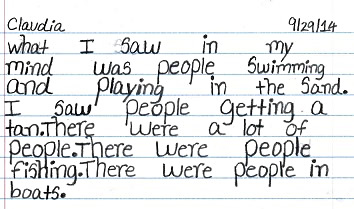 Claudia 9/29/14
what I saw in my
mind was people Swimming
and playing in the Sand.
I saw people getting a
tan.There were a lot of
people.There were people
fishing.There were people in
boats.